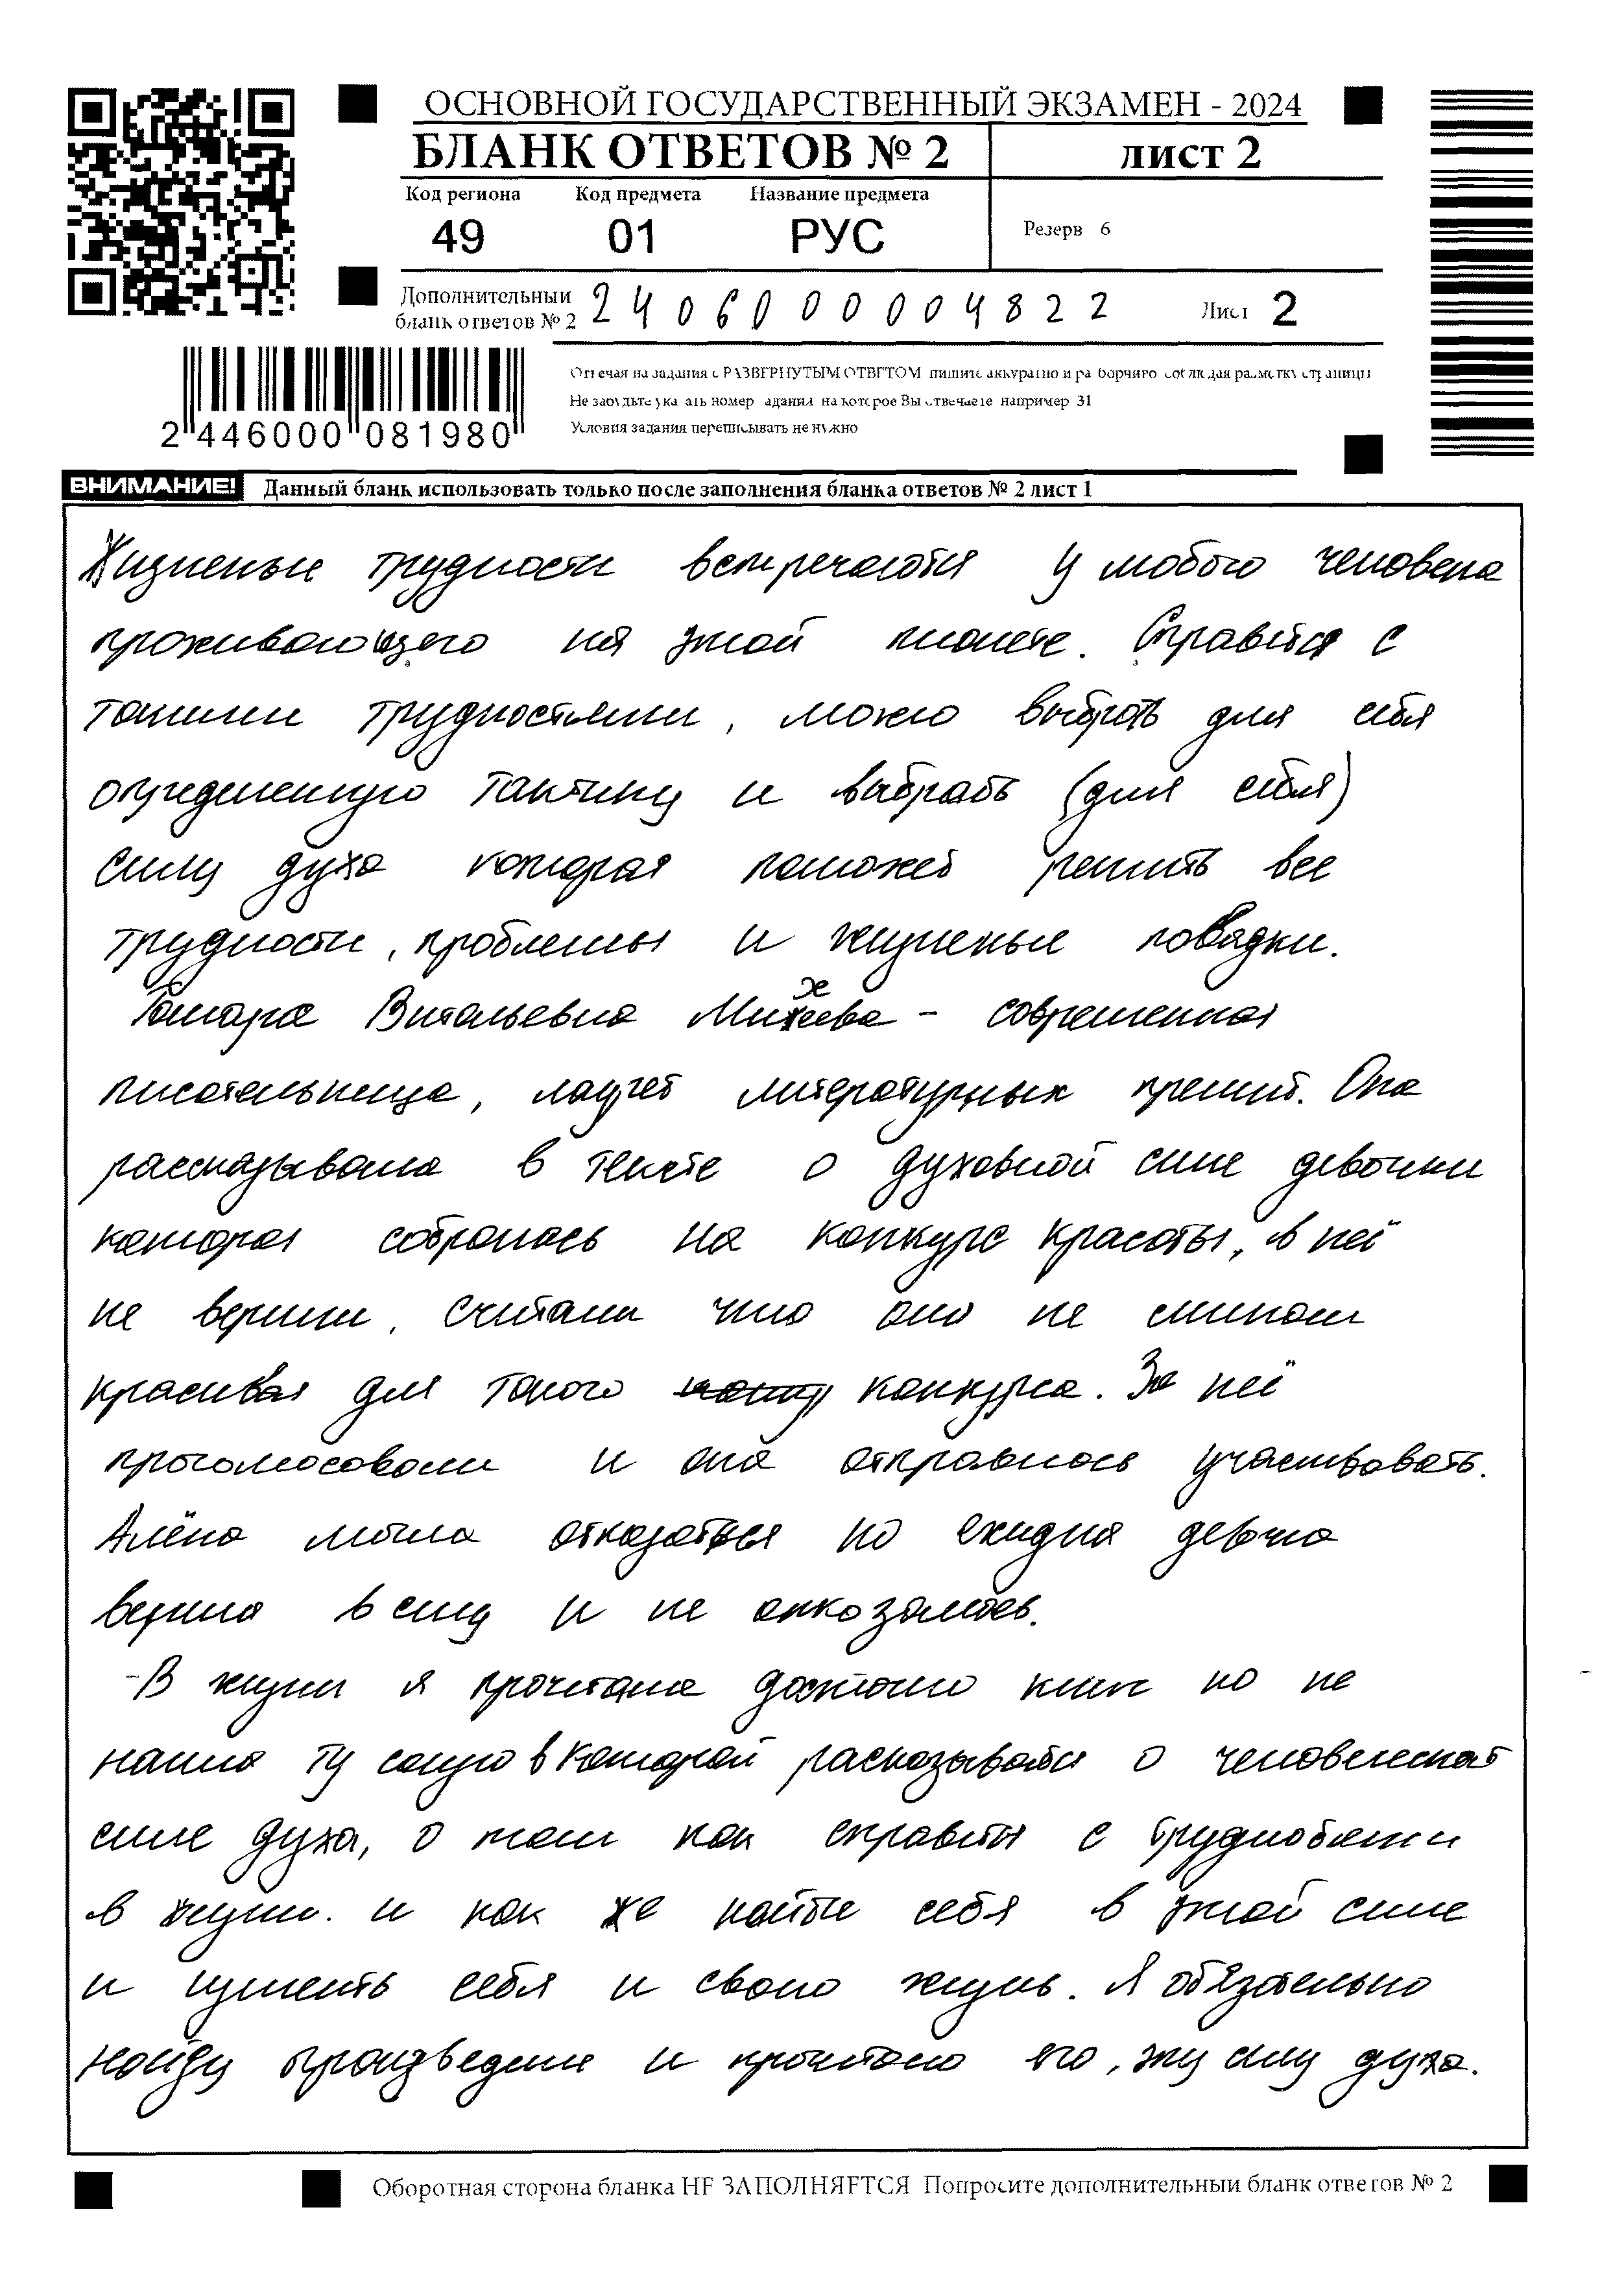 ОСНОВНОЙ ГОСУДАРСТВЕННЫЙ ЭКЗАМЕН - 2024
БЛАНК ОТВЕТОВ № 2
ЛИСТ 2
Код региона Код предмета Название предмета
49 01 РУС
Резерв 6
Дополнительный
бланк ответов № 2
2406000004822
Лист 2
Отвечая на задания с РАЗВЕРНУТЫМ ОТВЕТОМ пишите аккуратно и разборчиво соблюдая разметку страницы
Не забудьте указать номер задания на которое Вы отвечаете например 31
Условия задания переписывать не нужно
2 446000 081980
ВНИМАНИЕ! Данный бланк использовать только после заполнения бланка ответов № 2 лист 1
Жизненые трудности встречаются у любого человека
проживающего на этой планете. Справится с
такими трудностями, можно выбрать для себя
определенную тактику и выбрать (для себя)
силу духа которая поможет решить все
трудности, проблемы и жизненые повадки.
Тамара Витальевна Михеева - современная
писательница, лауреат литературных премий. Она
рассказывала в тексте о духовной силе девочки
которая собралась на конкурс красоты, в неё
не верили, считали что она не слишком
красивая для такого конкурса. За неё
проголосовали и она отправилась участвовать.
Алёна могла отказаться но ехидная девочка
верила в силу и не отказалась.
-В жизни я прочитала достаточно книг но не
нашла ту самую в которой расказывается о человеческой
силе духа, о том как справится с трудностями
в жизни. и как же найти себя в этой силе
и изменить себя и свою жизнь. Я обязательно
найду произведение и прочитаю его, эту силу духа.
Оборотная сторона бланка НЕ ЗАПОЛНЯЕТСЯ Попросите дополнительный бланк ответов № 2